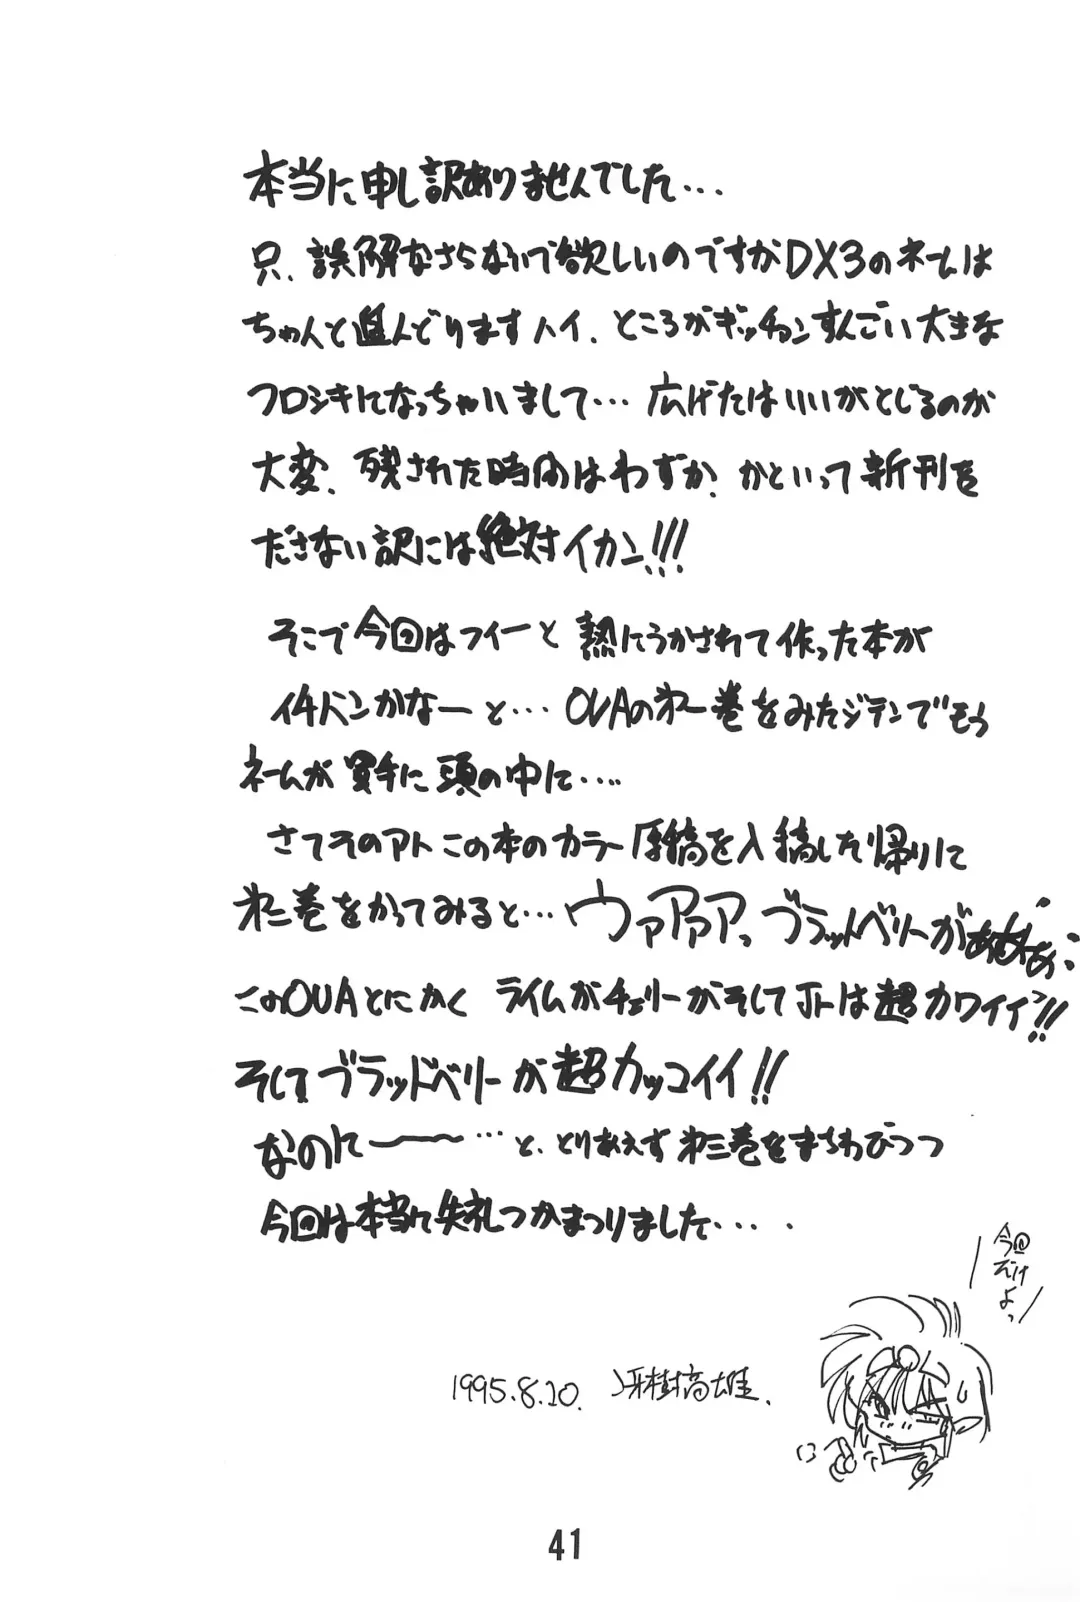 本当に申し訳ありませんでした...
只、誤解なさらないで欲しいのですがDX3のネームは
ちゃんと進んどりますハイ、ところがギッチョンすんごい大きな
フロシキになっちゃいまして...広げたはいいがとじるのが
大変、残された時間はわずか、かといって新刊を
ださない訳には絶対イカン!!!
そこで今回はフイーと熱にうかされて作った本が
イチバンかなーと...OVAの㐧一巻をみたジテンでもう
ネームが勝手に頭の中に....
さてそのアトこの本のカラー原稿を入稿した帰りに
㐧二巻をかってみると...ウァアァアっ、ブラッドベリーがあああ..
このOVAとにかくライムがチェリーがそしてJトは超カワイイ!!
そしてブラッドベリーが超カッコイイ!!
なのに〜〜...と、とりあえず㐧三巻をまちわびつつ
今回は本当に失礼つかまつりました....
今回
だけ
よっ
1995.8.20. 冴樹高雄.
41